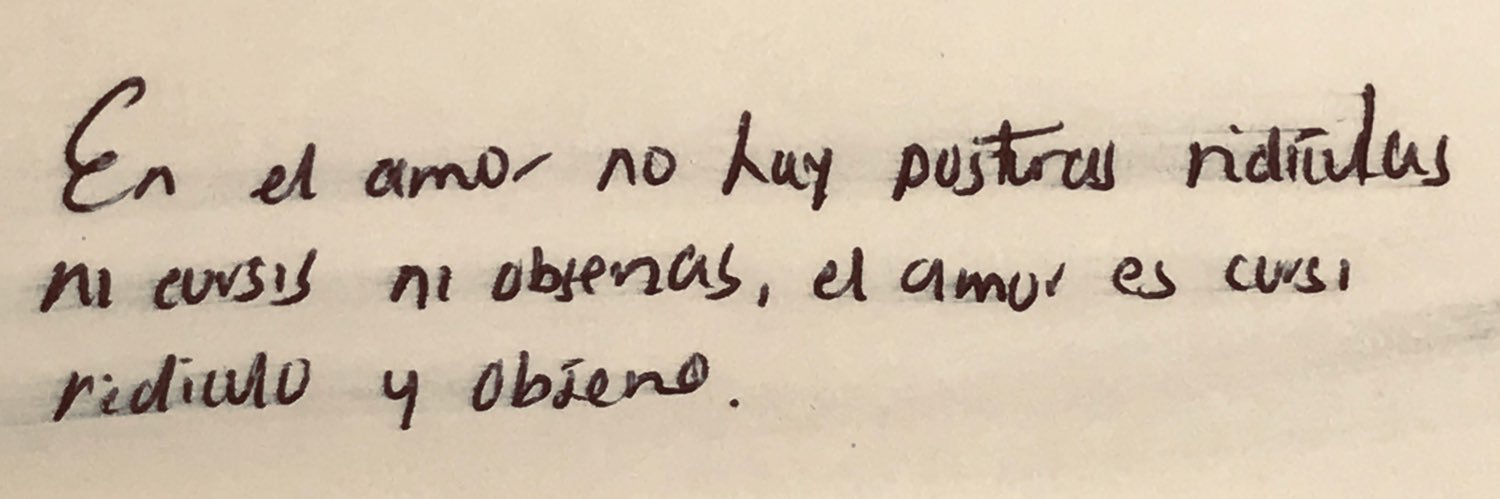 En el amor no hay posturas ridículas
ni cursis ni obsenas, el amor es cursi
ridiculo y obseno.